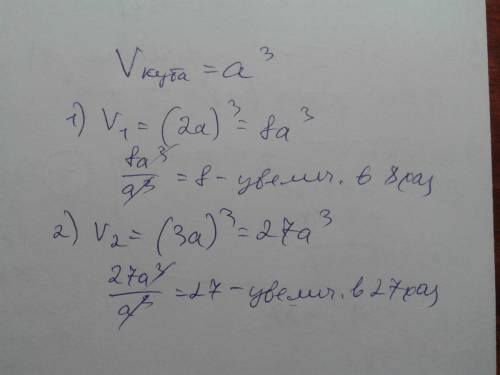 V куба = a³
1) V₁ = (2a)³ = 8a³
8a³/a³ = 8 - увелич. в 8 раз
2) V₂ = (3a)³ = 27a³
27a³/a³ = 27 - увелич. в 27 раз